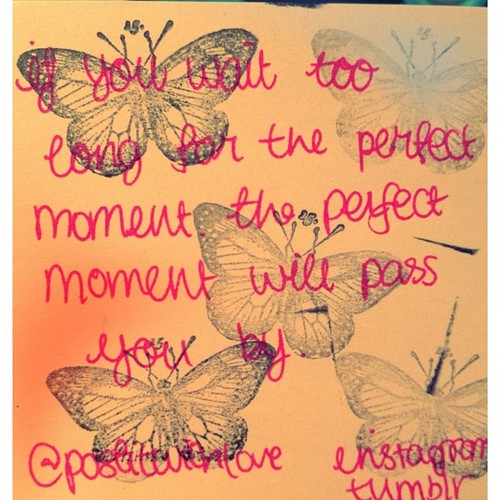 if you wait too
long for the perfect
moment. the perfect
moment will pass
you by.
instagram
tumblr